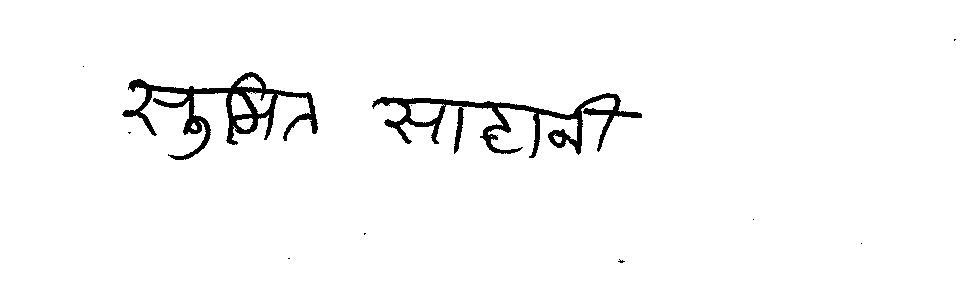 सुमित साहानी